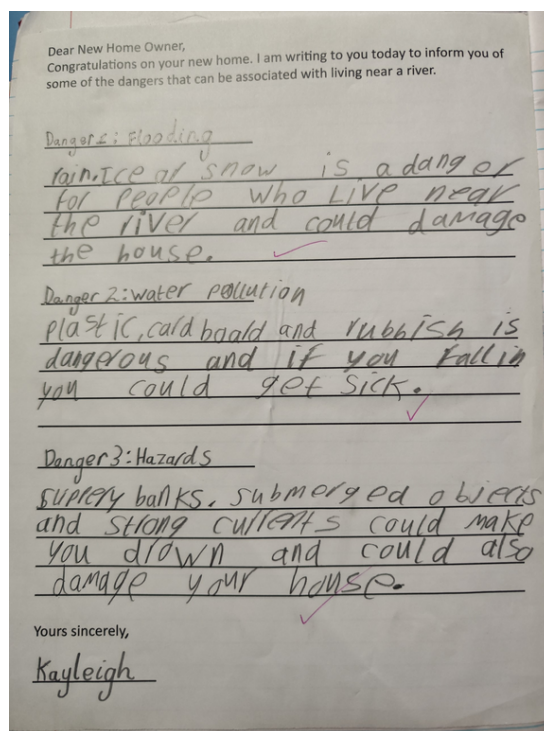 Dear New Home Owner,
Congratulations on your new home. I am writing to you today to inform you of
some of the dangers that can be associated with living near a river.
Danger 1: Flooding
rain. Ice or snow is a danger
for people who Live near
the river and could damage
the house.
Danger 2: water pollution
plastic, cardboard and rubbish is
dangerous and if you Fall in
you could get sick.
Danger 3: Hazards
suprery banks. submerged objects
and strong currents could make
you drown and could also
damage your house.
Yours sincerely,
Kayleigh